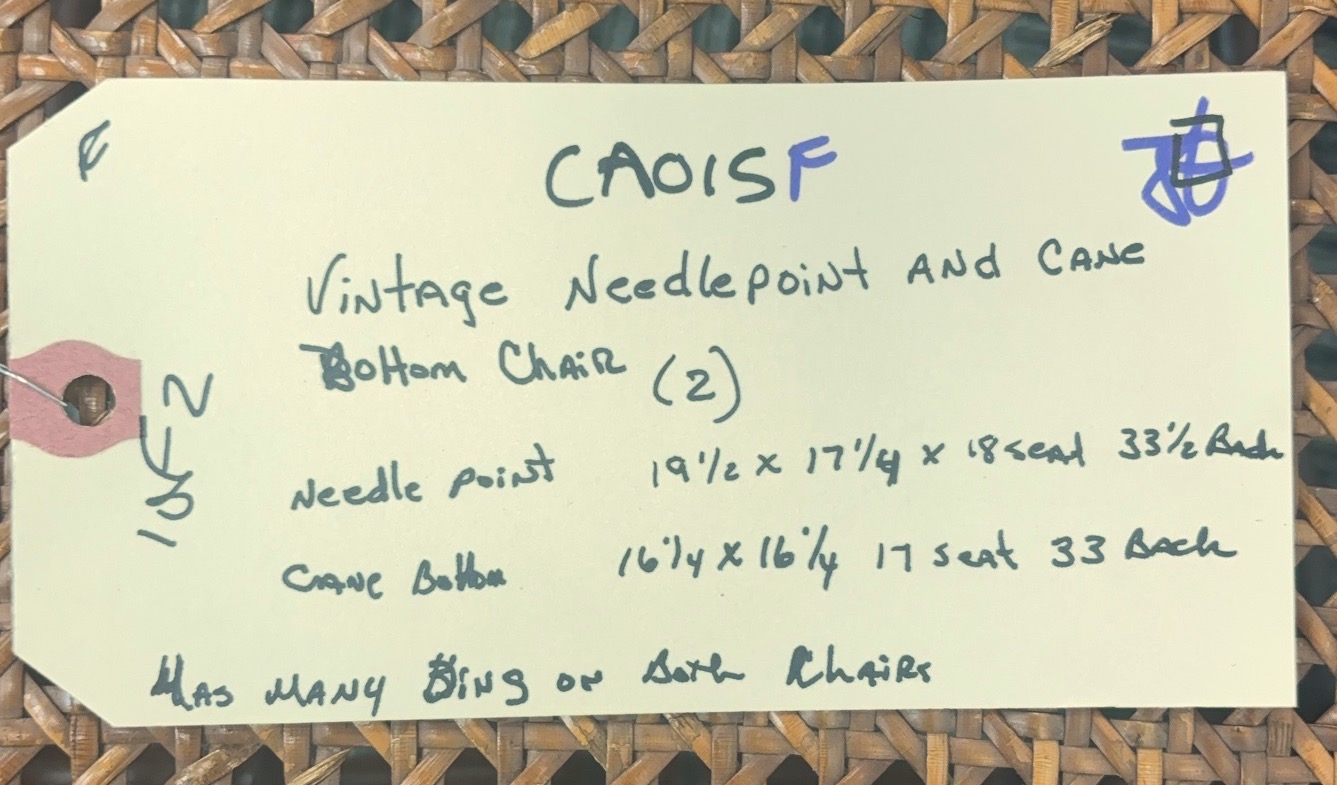 F
CAO15F
Vintage Needlepoint and Cane
Bottom Chair (2)
Needle point 19 1/2 x 17 1/4 x 18 seat 33 1/2 Back
Cane Bottom 16 1/4 x 16 1/4 17 seat 33 Back
Has many Ding on Both Chairs